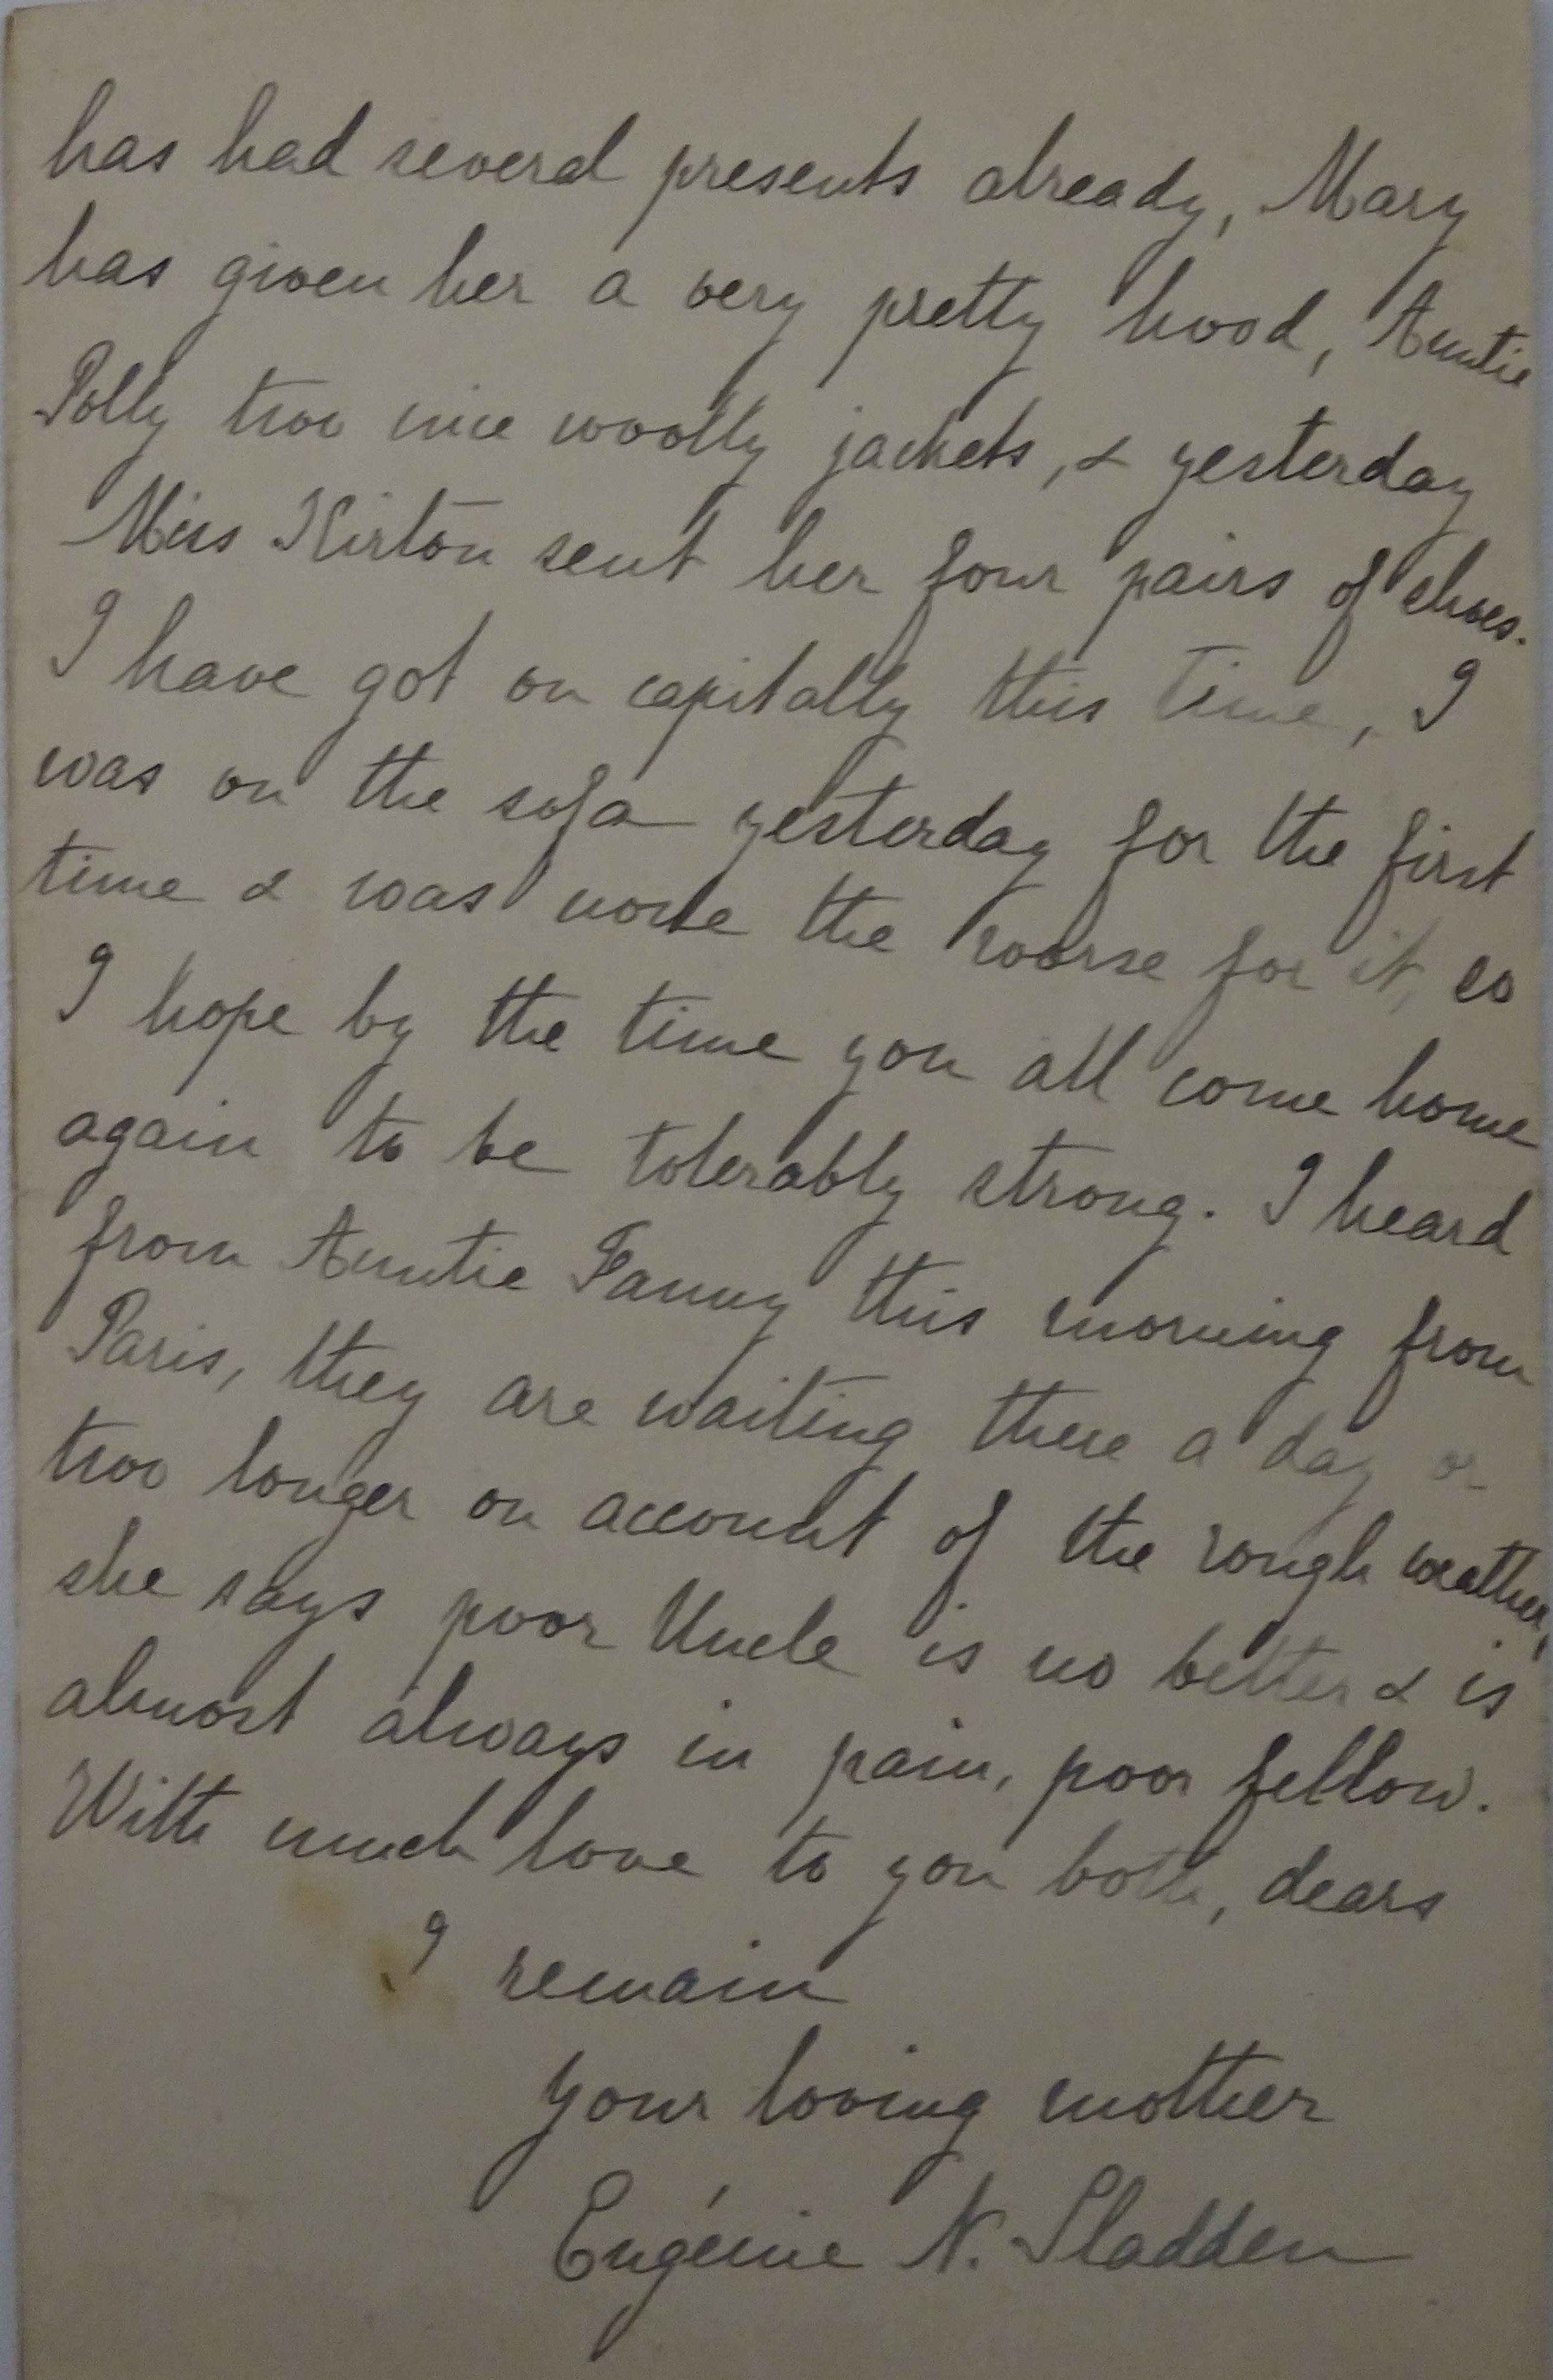 has had several presents already, Mary
has given her a very pretty hood, Auntie
Polly two nice woolly jackets, & yesterday
Miss Kirton sent her four pairs of shoes.
I have got on capitally this time, I
was on the sofa yesterday for the first
time & was none the worse for it, so
I hope by the time you all come home
again to be tolerably strong. I heard
from Auntie Fanny this morning from
Paris, they are waiting there a day or
two longer on account of the rough weather,
she says poor Uncle is no better & is
almost always in pain, poor fellow.
With much love to you both, dears
I remain
your loving mother
Eugénie N. Sladden